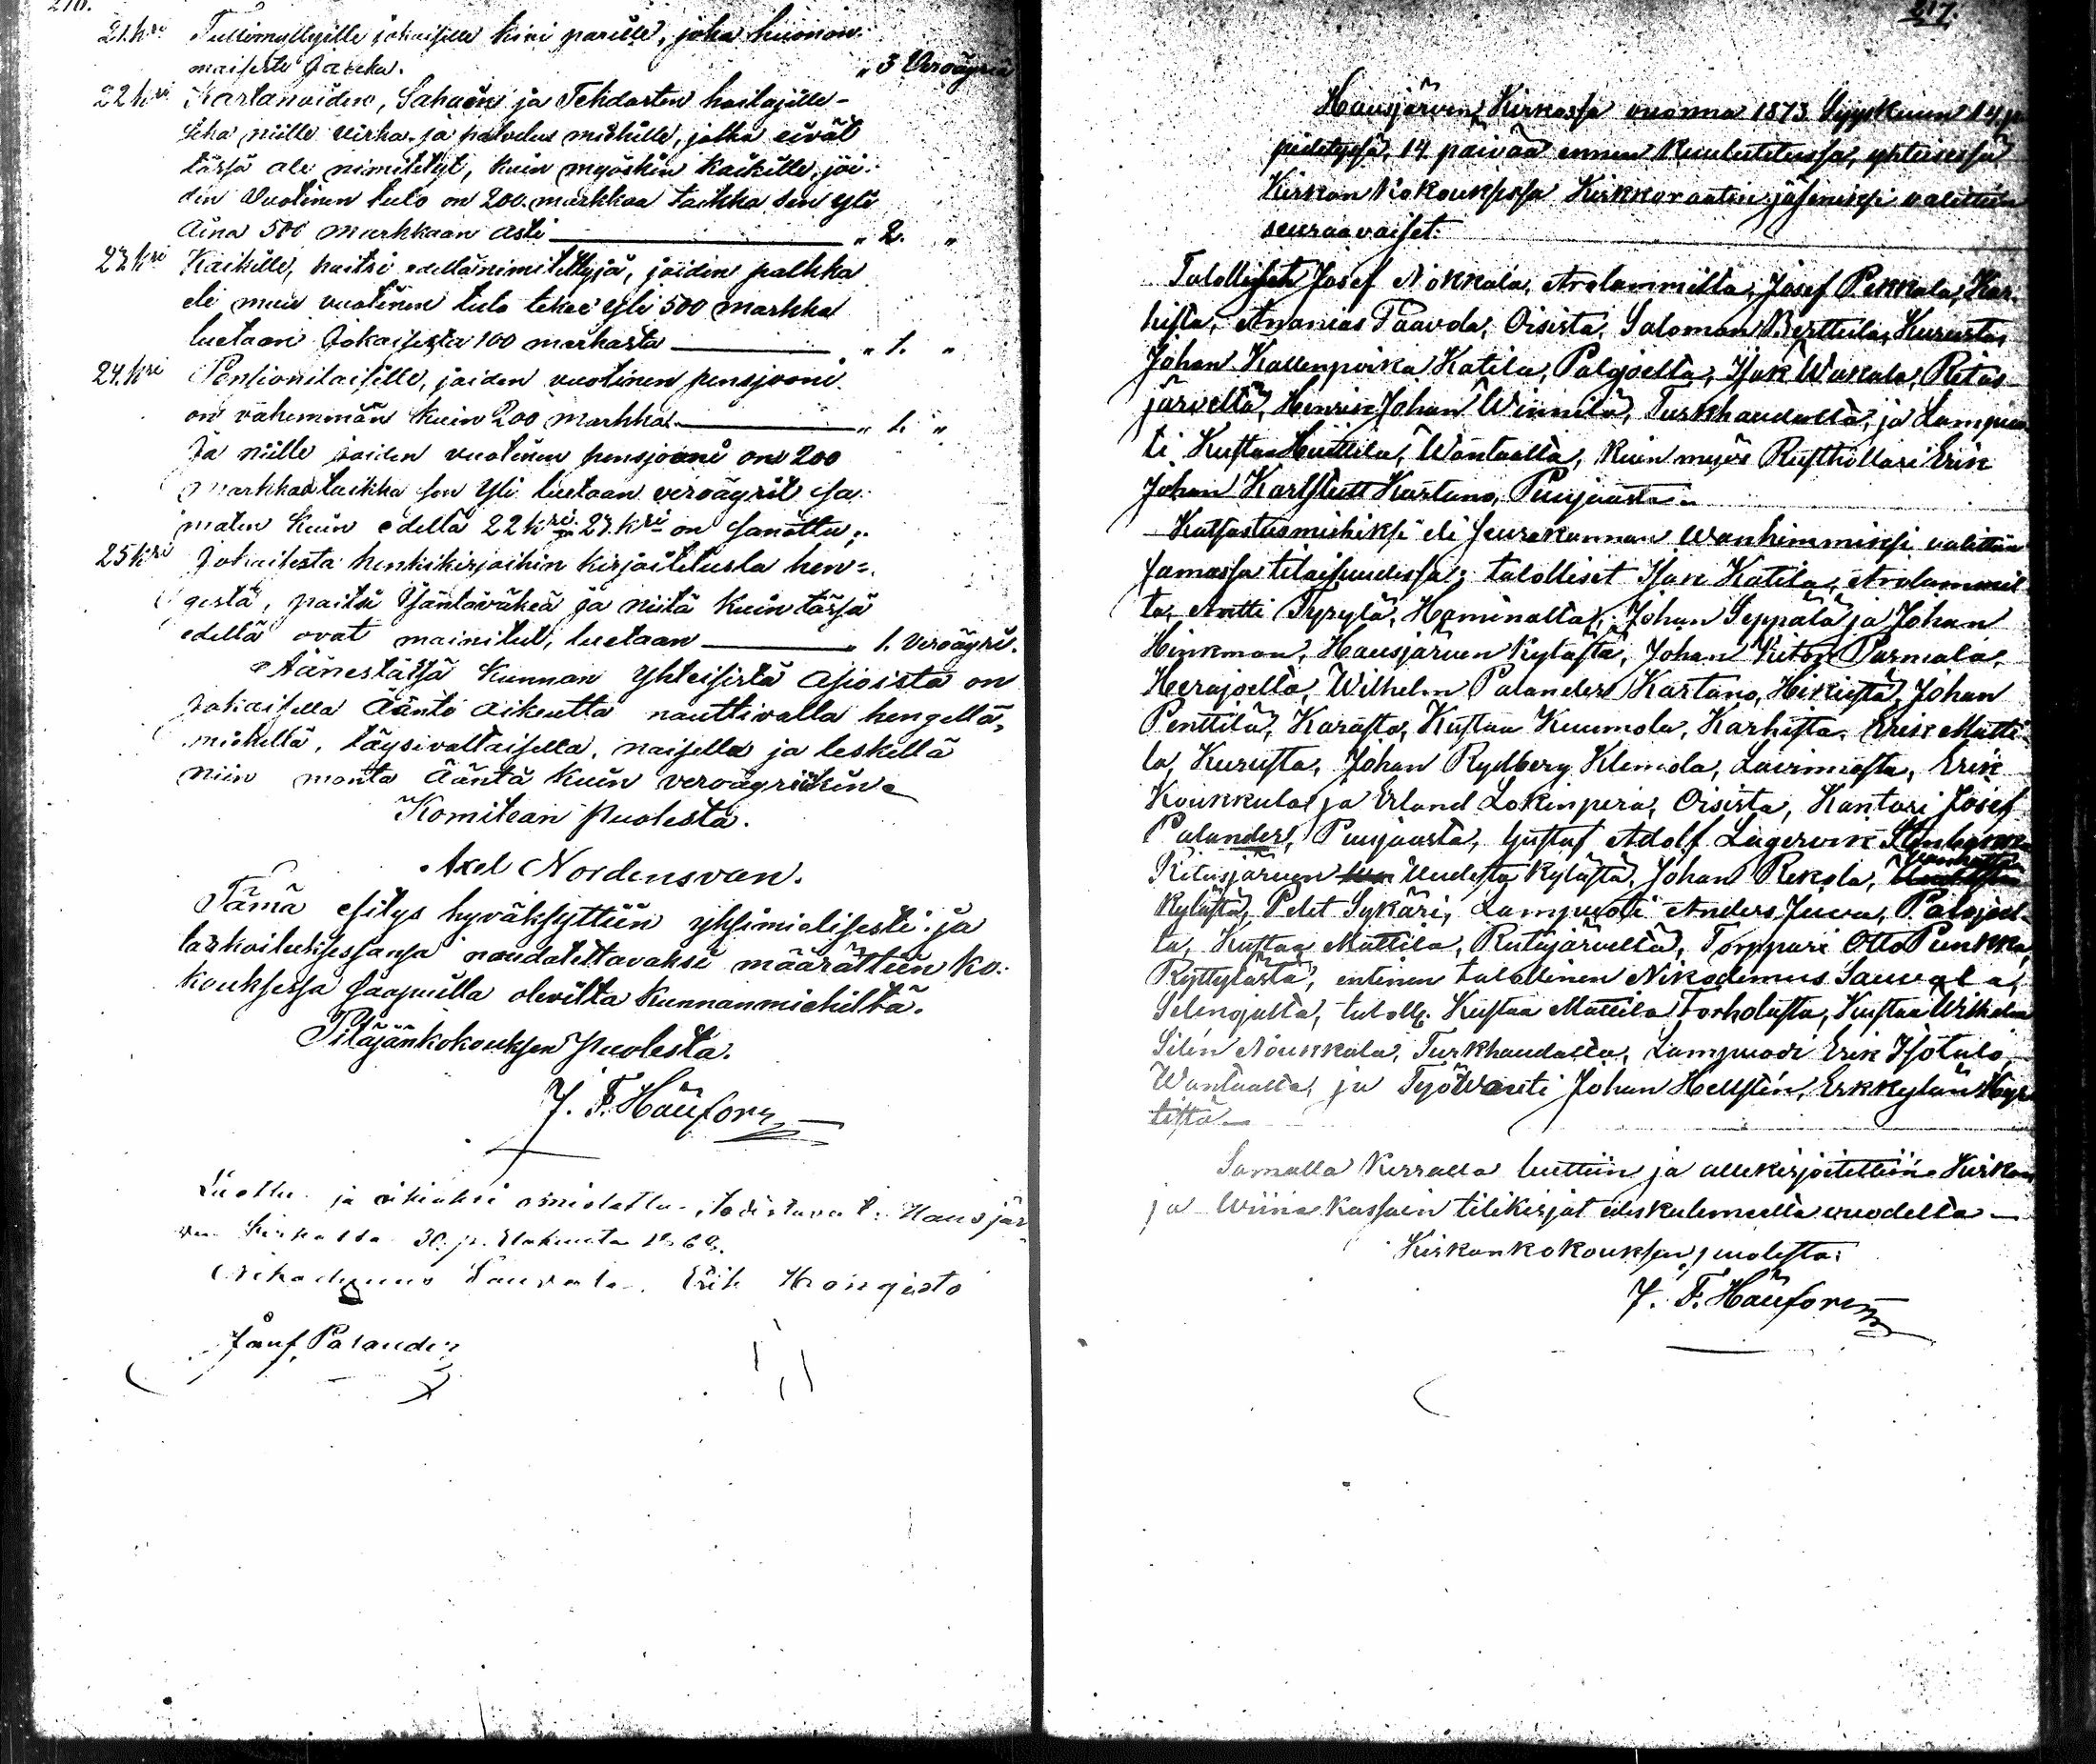 216.
21.kri Tullimyllyille jokaiselle kivi parille, joka huonon-
maisesti jaxeha. „ 3 Veroäyriä
22kri Kartanoiden, Sahain ja Tehdasten hoitajille-
seka niille virka- ja palvelus miehille, jotka eivät
tässä ole nimitetyt, kuin myöskin kaikille, joi-
den Vuotinen tulo on 200. markkaa taikka sen yli
Aina 500 markkaan asti „ 2. „
23kri Kaikille, paitsi edellänimitettyjä, joiden palkka
eli muu vuotinen tulo tekee yli 500 markka
luetaan Jokaisesta 100 markasta „ 1. „
24.kri Pensionilaisille, joiden vuotinen pensjooni
on vähemmän kuin 200 markka. „ 1. „
Ja niille joiden vuotinen pensjooni on 200
markkaa taikka sen yli luetaan veroäyrit sa-
maten kuin edellä 22kri 23.kri on sanottu;.
25kri Jokaisesta henkikirjoihin kirjoitetusta hen=
gestä, paitsi Isäntäväkeä ja niitä kuin tässä
edellä ovat mainitut, luetaan „ 1. Veroäyri.
Äänestäissä Kunnan yhteisistä Asioista on
jokaisella ääntö oikeutta nauttivalla hengellä,
miehellä, täysivaltaisella, naisella ja leskellä
niin monta ääntä kuin veroäyriäkin
Komitean puolesta.
Axel Nordensvan.
Tämä esitys hyväksyttiin yksimielisesti ja
tarkoituksessansa noudatettavaksi määrättiin Ko-
kouksessa saapuilla olevilta Kunnanmiehiltä.
Pitäjänkokouksen puolesta.
J. F. Häufors
Luettu ja oikiaksi tunnistettu, todistavat: Hausjär-
ven Kirkossa 30. p. Elokuuta 1868.
Nikodemus Sauvala. Erik Hongisto
Josef Palander
217.
Hausjärven Kirkossa vuonna 1873 Syyskuun 14 p
pidetyssä, 14 päivää ennen Kuulutetussa, yhteisessä
Kirkon Kokouksessa Kirkkoraatin jäseniksi valittiin
seuraavaiset:
Talolliset Josef Nokkala, Arolammilta, Josef Pekkala, Kar-
hista, Ananias Paavola, Oisista, Salomon Berttula, Kurusta,
Johan Kallenpoika Katila, Palojoelta, Isak Wakala, Ritas-
järveltä, Henrik Johan Winnilä, Turkhaudalta, ja Lampuo-
ti Kustaa Huittila, Wantaalta, kuin myös Rusthollari Erik
Johan Karlstett Kartano, Puujaasta.
Katsastusmiehiksi eli seurakunnan Wanhimmiksi valittiin
samassa tilaisuudessa; talolliset Isak Katila, Arolammil-
ta, Antti Tyrylä, Haminalta, Johan Seppälä ja Johan
Hinkman, Hausjärven Kylästä, Johan Kiton Parmala,
Herajoelta, Wilhelm Palander Kartano, Hikiästä, Johan
Penttilä, Karasta, Kustaa Kuumola, Karhista, Erik Matti-
la, Kurusta, Johan Rydberg Klemola, Lavinnosta, Erik
Koukkula ja Erland Lokinperä, Oisista, Kantori Josef
Palander, Puujaasta, Gustaf Adolf Lagervik
Ritasjärven Uudesta Kylästä, Johan Rekola,
Kylästä, Petet Sykäri, Lampuoti Anders Juva, Palojoel-
ta, Kustaa Mattila, Ritasjärveltä, Torppari Otto Punkka,
Ryttylästä, entinen talollinen Nikodemus Sauvala,
Selinojalta, taloll. Kustaa Mattila Torholasta, Kustaa Wilhelm
Silén Noukkala, Turkhaudalta, Lampuodi Erik Isotalo
Wantaalta, ja Työvouti Johan Hellstén, Erkkylän
tistä
Samalla Kerralla luettiin ja allekirjoitettiin Kirkon
ja Wiina kassain tilikirjat edeskuluneelta vuodelta
Kirkonkokouksen puolesta:
J. F. Häufors